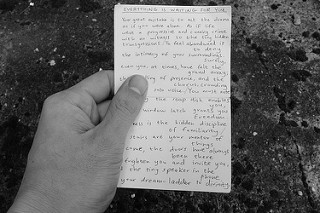 EVERYTHING IS WAITING FOR YOU
Your great mistake is to act the drama
as if you were alone. As if life
were a progressive and cunning crime
with no witness to the tiny hidden
transgressions. To feel abandoned is
to deny
the intimacy of your surroundings.
Surely,
even you, at times, have felt the
grand array;
the presence, and the
chorus, crowding
solo voice. You must note
the soap dish enables
window latch grants you
freedom
is the hidden discipline
of familiarity.
stairs are your mentor of
things
come, the doors have always
been there
frighten you and invite you,
the tiny speaker in the
phone
your dream-ladder to divinity